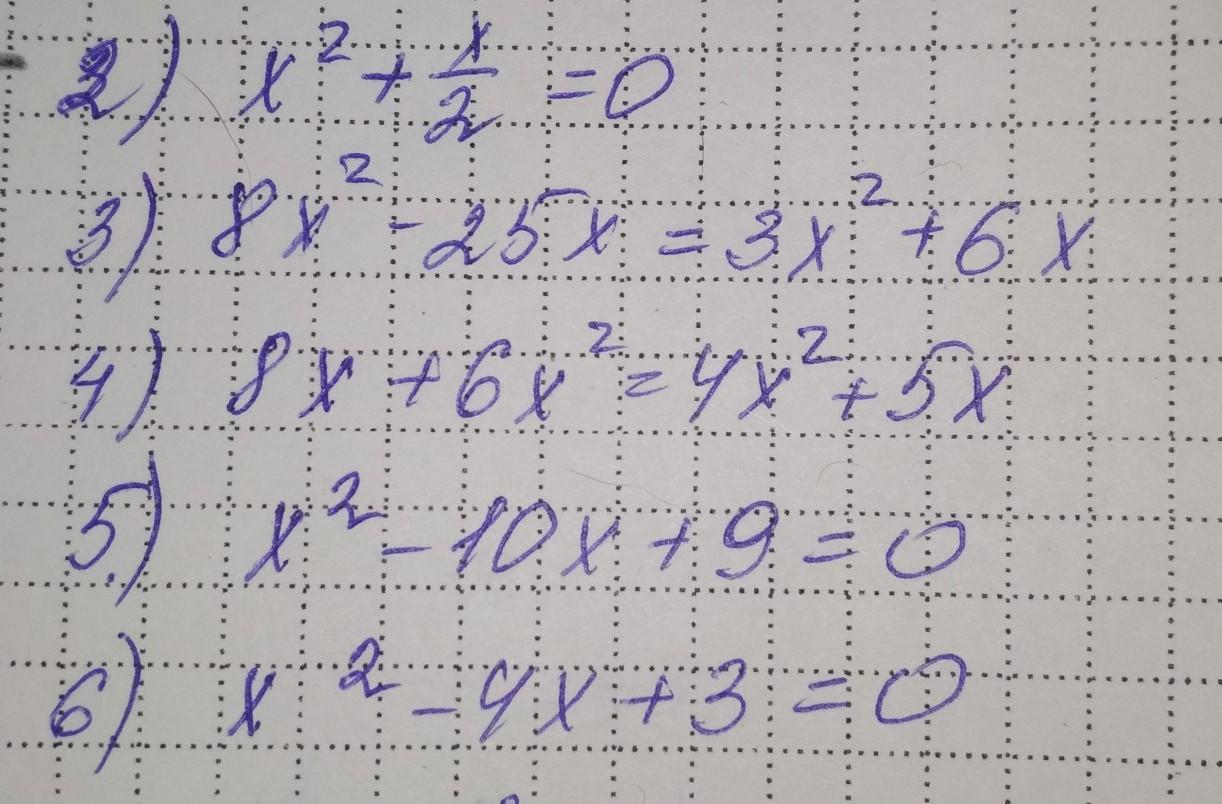 2) x² + x/2 = 0
3) 8x² - 25x = 3x² + 6x
4) 8x + 6x² = 4x² + 5x
5) x² - 10x + 9 = 0
6) x² - 4x + 3 = 0